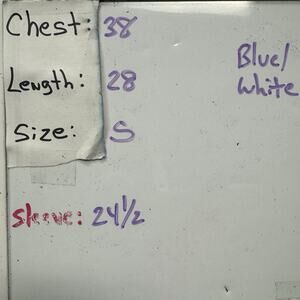 Chest: 38
Blue/
White
Length: 28
Size: S
Sleeve: 24 1/2